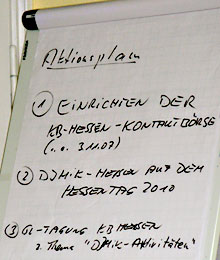 Aktionsplan
① EINRICHTEN DER
KB-HESSEN-KONTAKTBÖRSE
(i.O. 3.11.07)
② DJMiK-HESSEN AUF DEM
HESSENTAG 2010
③ GL-TAGUNG KB HESSEN
z. Thema "DJMiK-Aktivitäten"